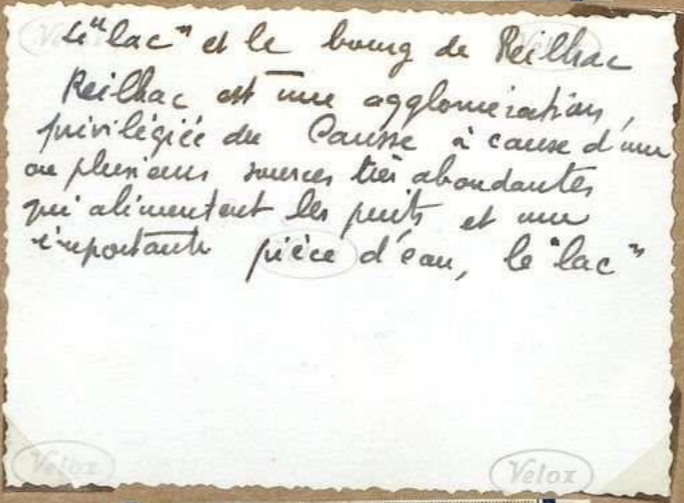 Le "lac" et le bourg de Reilhac
Reilhac est une agglomération,
privilégiée du Causse à cause d'une
ou plusieurs sources très abondantes
qui alimentent les puits et une
importante pièce d'eau, le "lac"
Velox
Velox
Velox
Velox